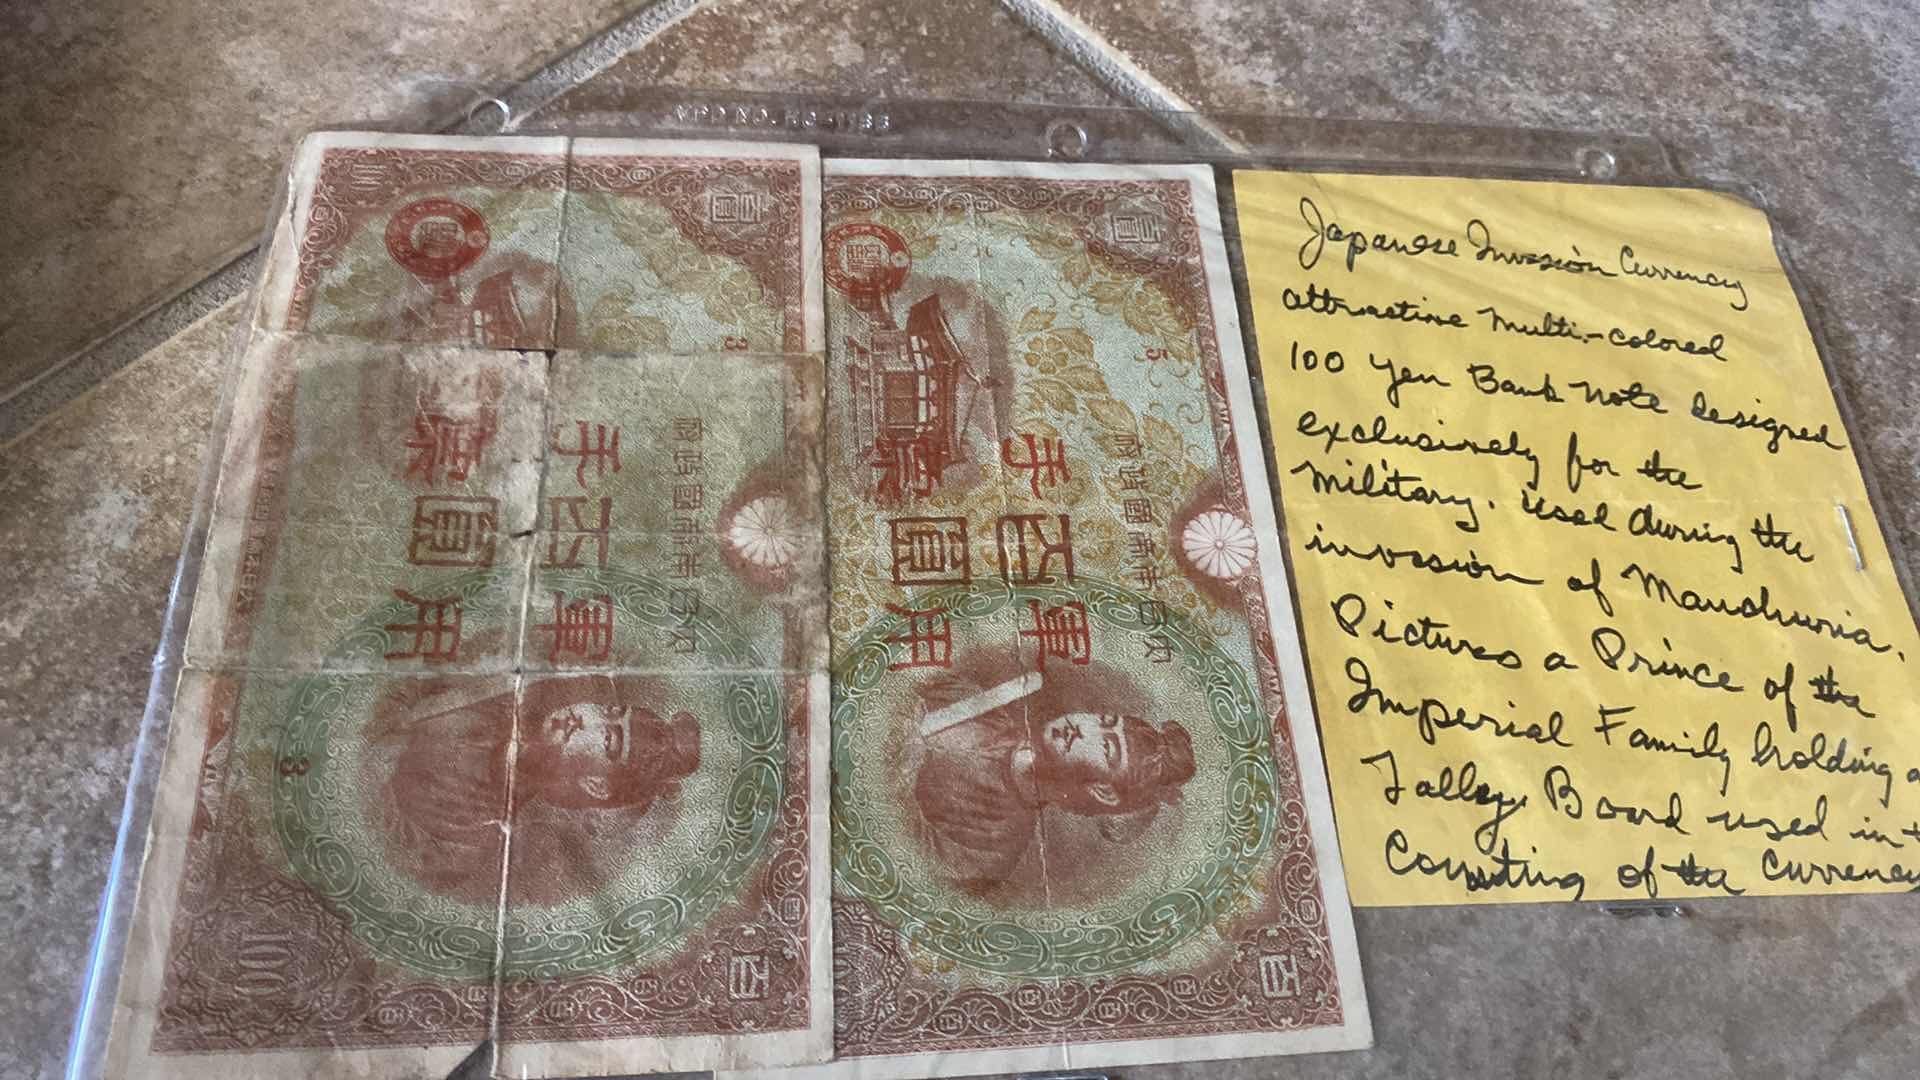 大日本帝國政府
軍用
百圓
手票
百圓
百
100
3
3
大日本帝國政府
軍用
百圓
手票
百圓
百
5
Japanese Invasion Currency
attractive multi-colored
100 Yen Bank note designed
exclusively for the
military. Used during the
invasion of Manchuria.
Pictures a Prince of the
Imperial Family holding a
Talley Board used in
Counting of the currency